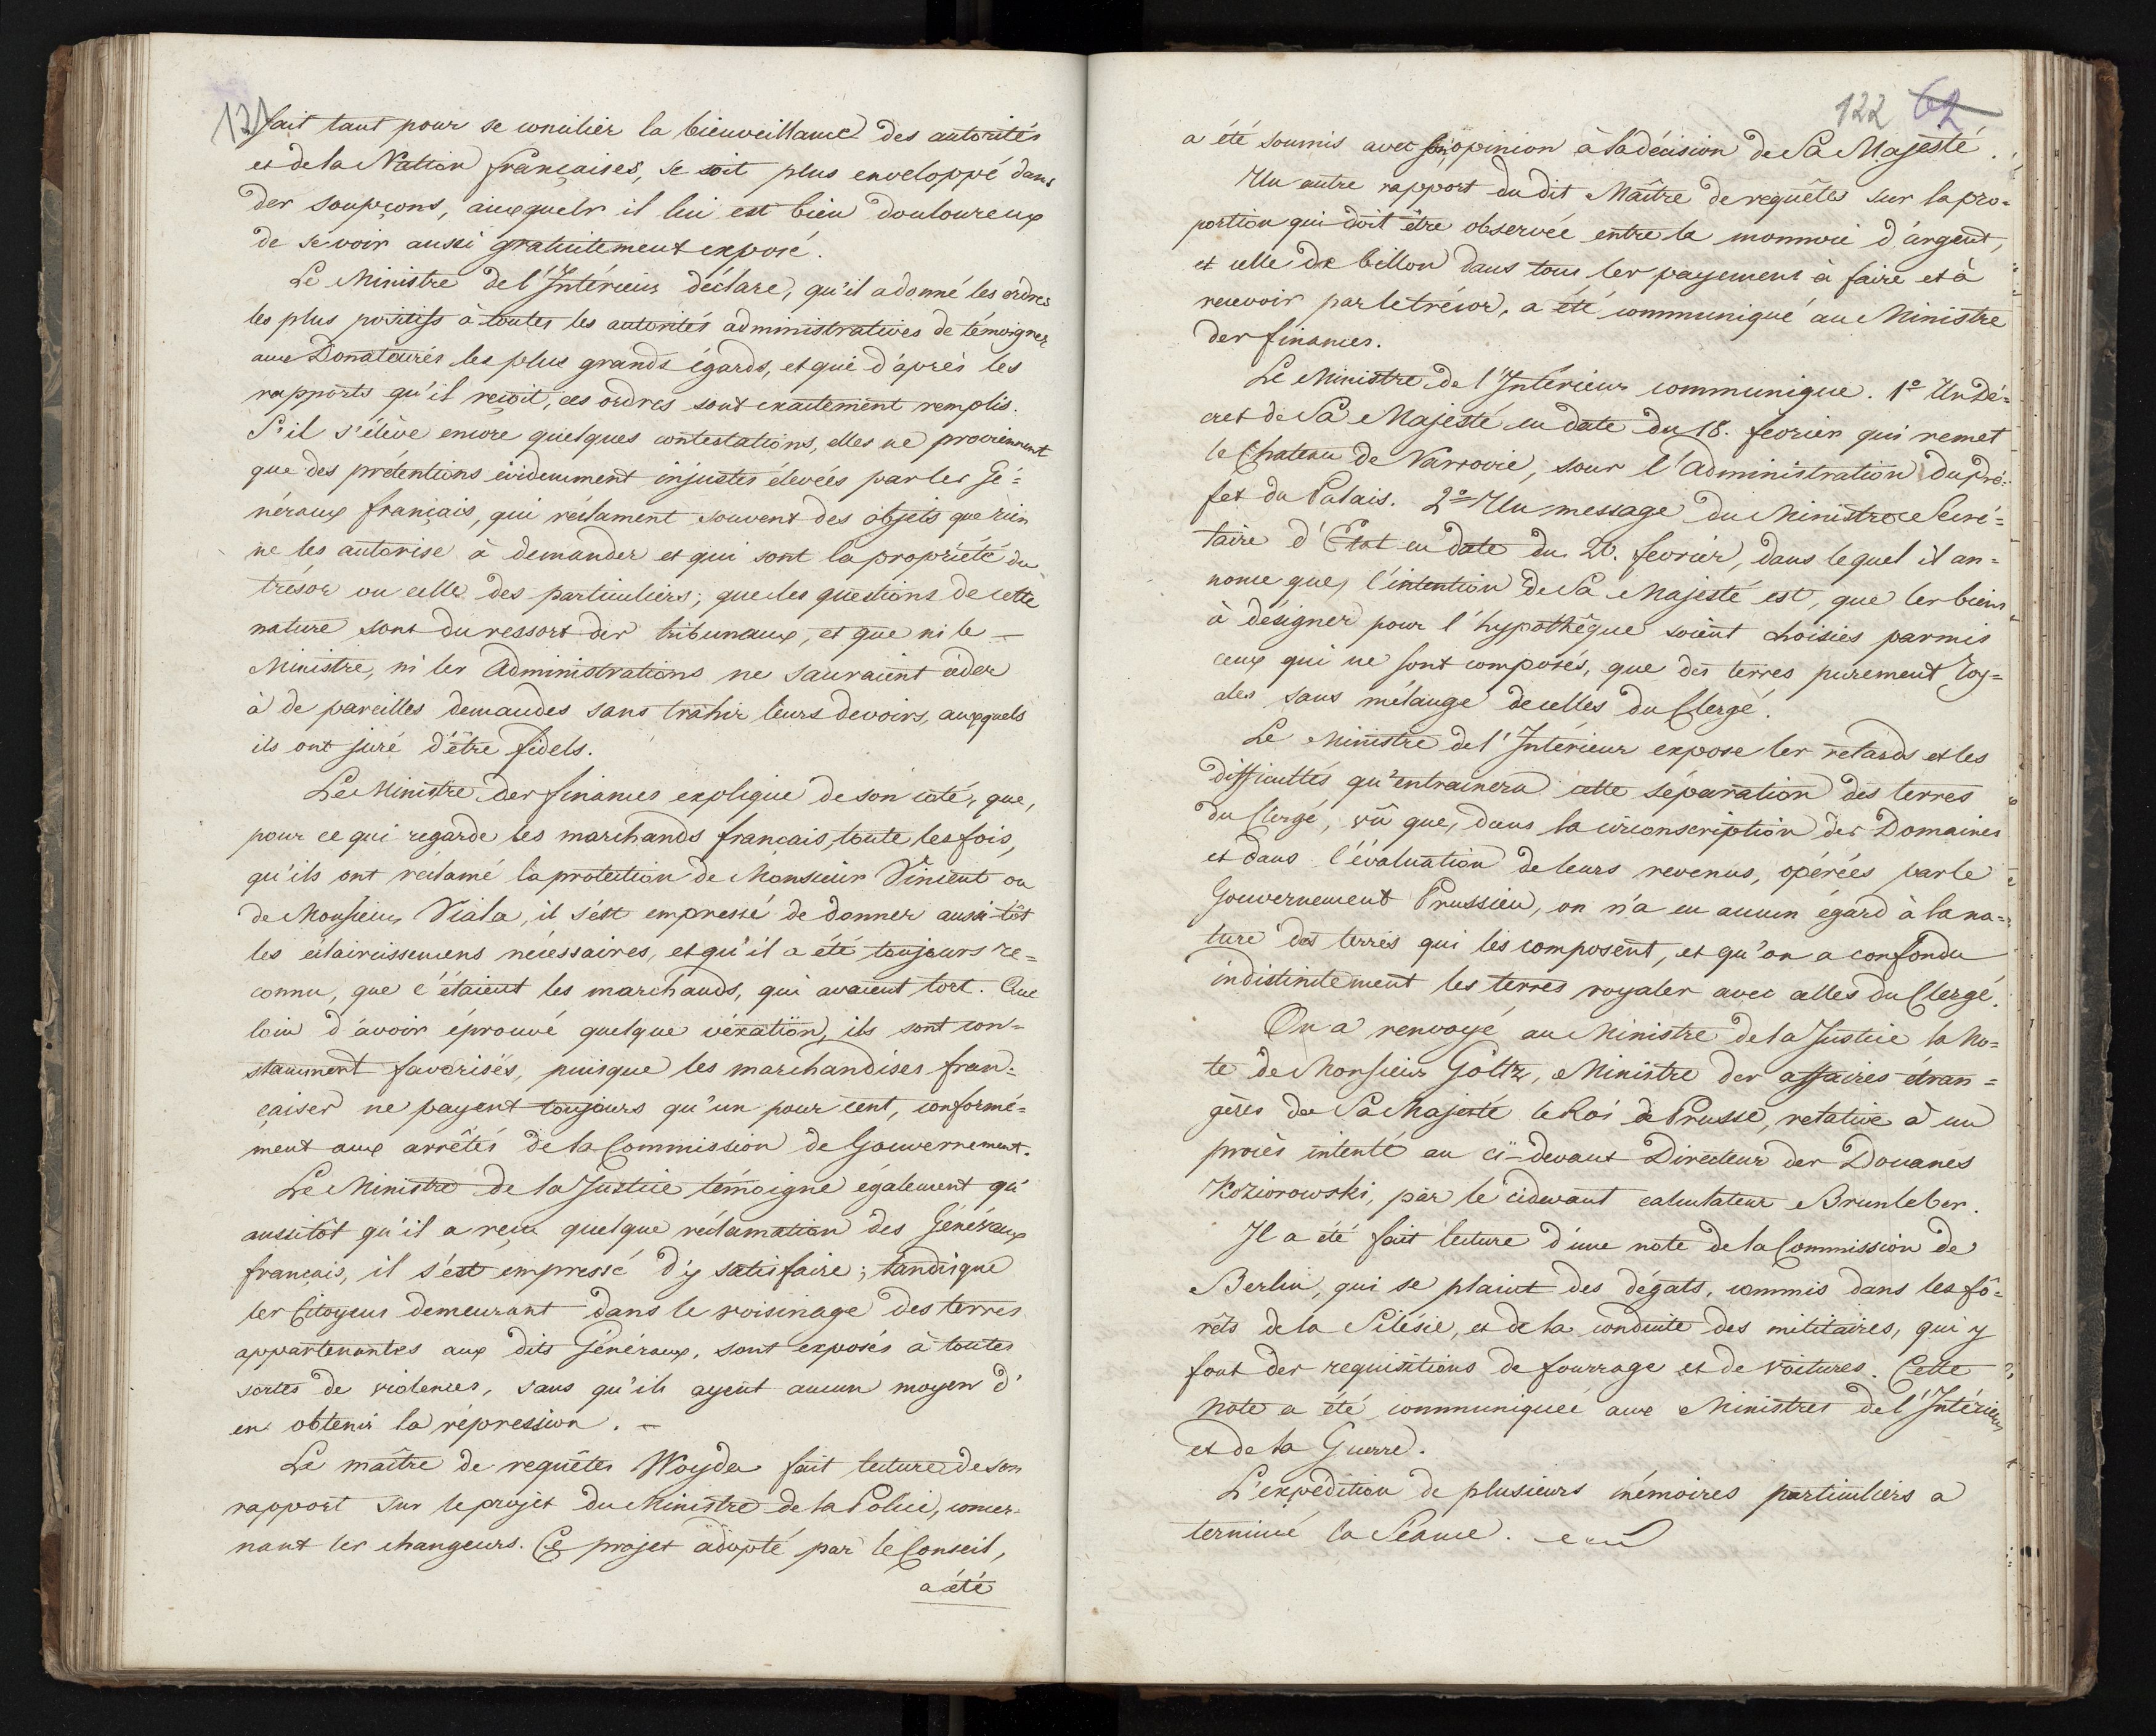 121
fait tant pour se concilier la bienveillance des autorités
et de la Nation françaises, se soit plus enveloppé dans
des soupçons, auxquels il lui est bien douloureux
de se voir aussi gratuitement exposé.
Le Ministre de l'Intérieur déclare, qu'il a donné les ordres
les plus positifs à toutes les autorités administratives de témoigner
aux Donataires les plus grands égards, et que d'après les
rapports qu'il reçoit, ces ordres sont exactement remplis.
S'il s'élève encore quelques contestations, elles ne proviennent
que des prétentions évidemment injustes élevées par les Gé=
néraux français, qui réclament souvent des objets que rien
ne les autorise à demander et qui sont la propriété du
trésor ou celle des particuliers; que les questions de cette
nature sont du ressort des tribunaux, et que ni le —
Ministre, ni les Administrations ne sauraient céder
à de pareilles demandes sans trahir leurs devoirs, auxquels
ils ont juré d'être fidels.
Le Ministre des finances explique de son coté, que,
pour ce qui regarde les marchands français, toute les fois,
qu'ils ont réclamé la protection de Monsieur Vincent ou
de Monsieur Viala, il s'est empressé de donner aussi-tôt
les éclaircissemens nécessaires, et qu'il a été toujours re=
connu, que c'étaient les marchands, qui avaient tort. Que
loin d'avoir éprouvé quelque véxation, ils sont con=
stamment favorisés, puisque les marchandises fran=
çaises ne payent toujours qu'un pour cent, conformé=
ment aux arrêtés de la Commission de Gouvernement.
Le Ministre de la Justice témoigne également qu'
aussitôt qu'il a reçu quelque réclamation des Généraux
français, il s'est empressé d'y satisfaire; tandisque
les Citoyens demeurant dans le voisinage des terres
appartenantes aux dits Généraux, sont exposés à toutes
sortes de violences, sans qu'ils ayent aucun moyen d'
en obtenir la répression. —
Le maître de requêtes Woyda fait lecture de son
rapport sur le projet du Ministre de la Police, concer=
nant les changeurs. Ce projet adopté par le Conseil,
a été
122 62
a été soumis avec son opinion à la décision de Sa Majesté.
Un autre rapport du dit Maître de requêtes sur la pro=
portion qui doit être observée entre la monnoie d'argent,
et celle de billon dans tous les payemens à faire et à
recevoir par le trésor, a été communiqué au Ministre
des finances.
Le Ministre de l'Intérieur communique. 1º Un Dé=
cret de Sa Majesté en date du 18. fevrier qui remet
le Chateau de Varsovie, sous l'administration du pré=
fet du Palais. 2º Un message du Ministre Secré=
taire d'Etat en date du 20. fevrier, dans lequel il an=
nonce que, l'intention de Sa Majesté est, que les biens
à désigner pour l'hypothêque soient choisies parmis
ceux qui ne sont composés, que des terres purement roy=
ales sans mélange de celles du Clergé.
Le Ministre de l'Intérieur expose les retards et les
difficultés qu'entrainera cette séparation des terres
du Clergé, vû que, dans la circonscription des Domaines
et dans l'évaluation de leurs revenus, opérées par le
Gouvernement Prussien, on n'a eu aucun égard à la na=
ture des terres qui les composent, et qu'on a confondu
indistinctement les terres royales avec celles du Clergé.
On a renvoyé au Ministre de la Justice la No=
te de Monsieur Göltz, Ministre des affaires étran=
gères de Sa Majesté le Roi de Prusse, relative à un
procès intenté au ci-devant Directeur des Douanes
Koziorowski, par le cidevant calculateur Brunleber.
Il a été fait lecture d'une note de la Commission de
Berlin, qui se plaint des dégats, commis dans les fô=
rêts de la Silésie, et de la conduite des militaires, qui y
font des requisitions de fourrage et de voitures. Cette
note a été communiquée aux Ministres de l'Intérieur
et de la Guerre.
L'expédition de plusieurs mémoires particuliers a
terminé la Séance.